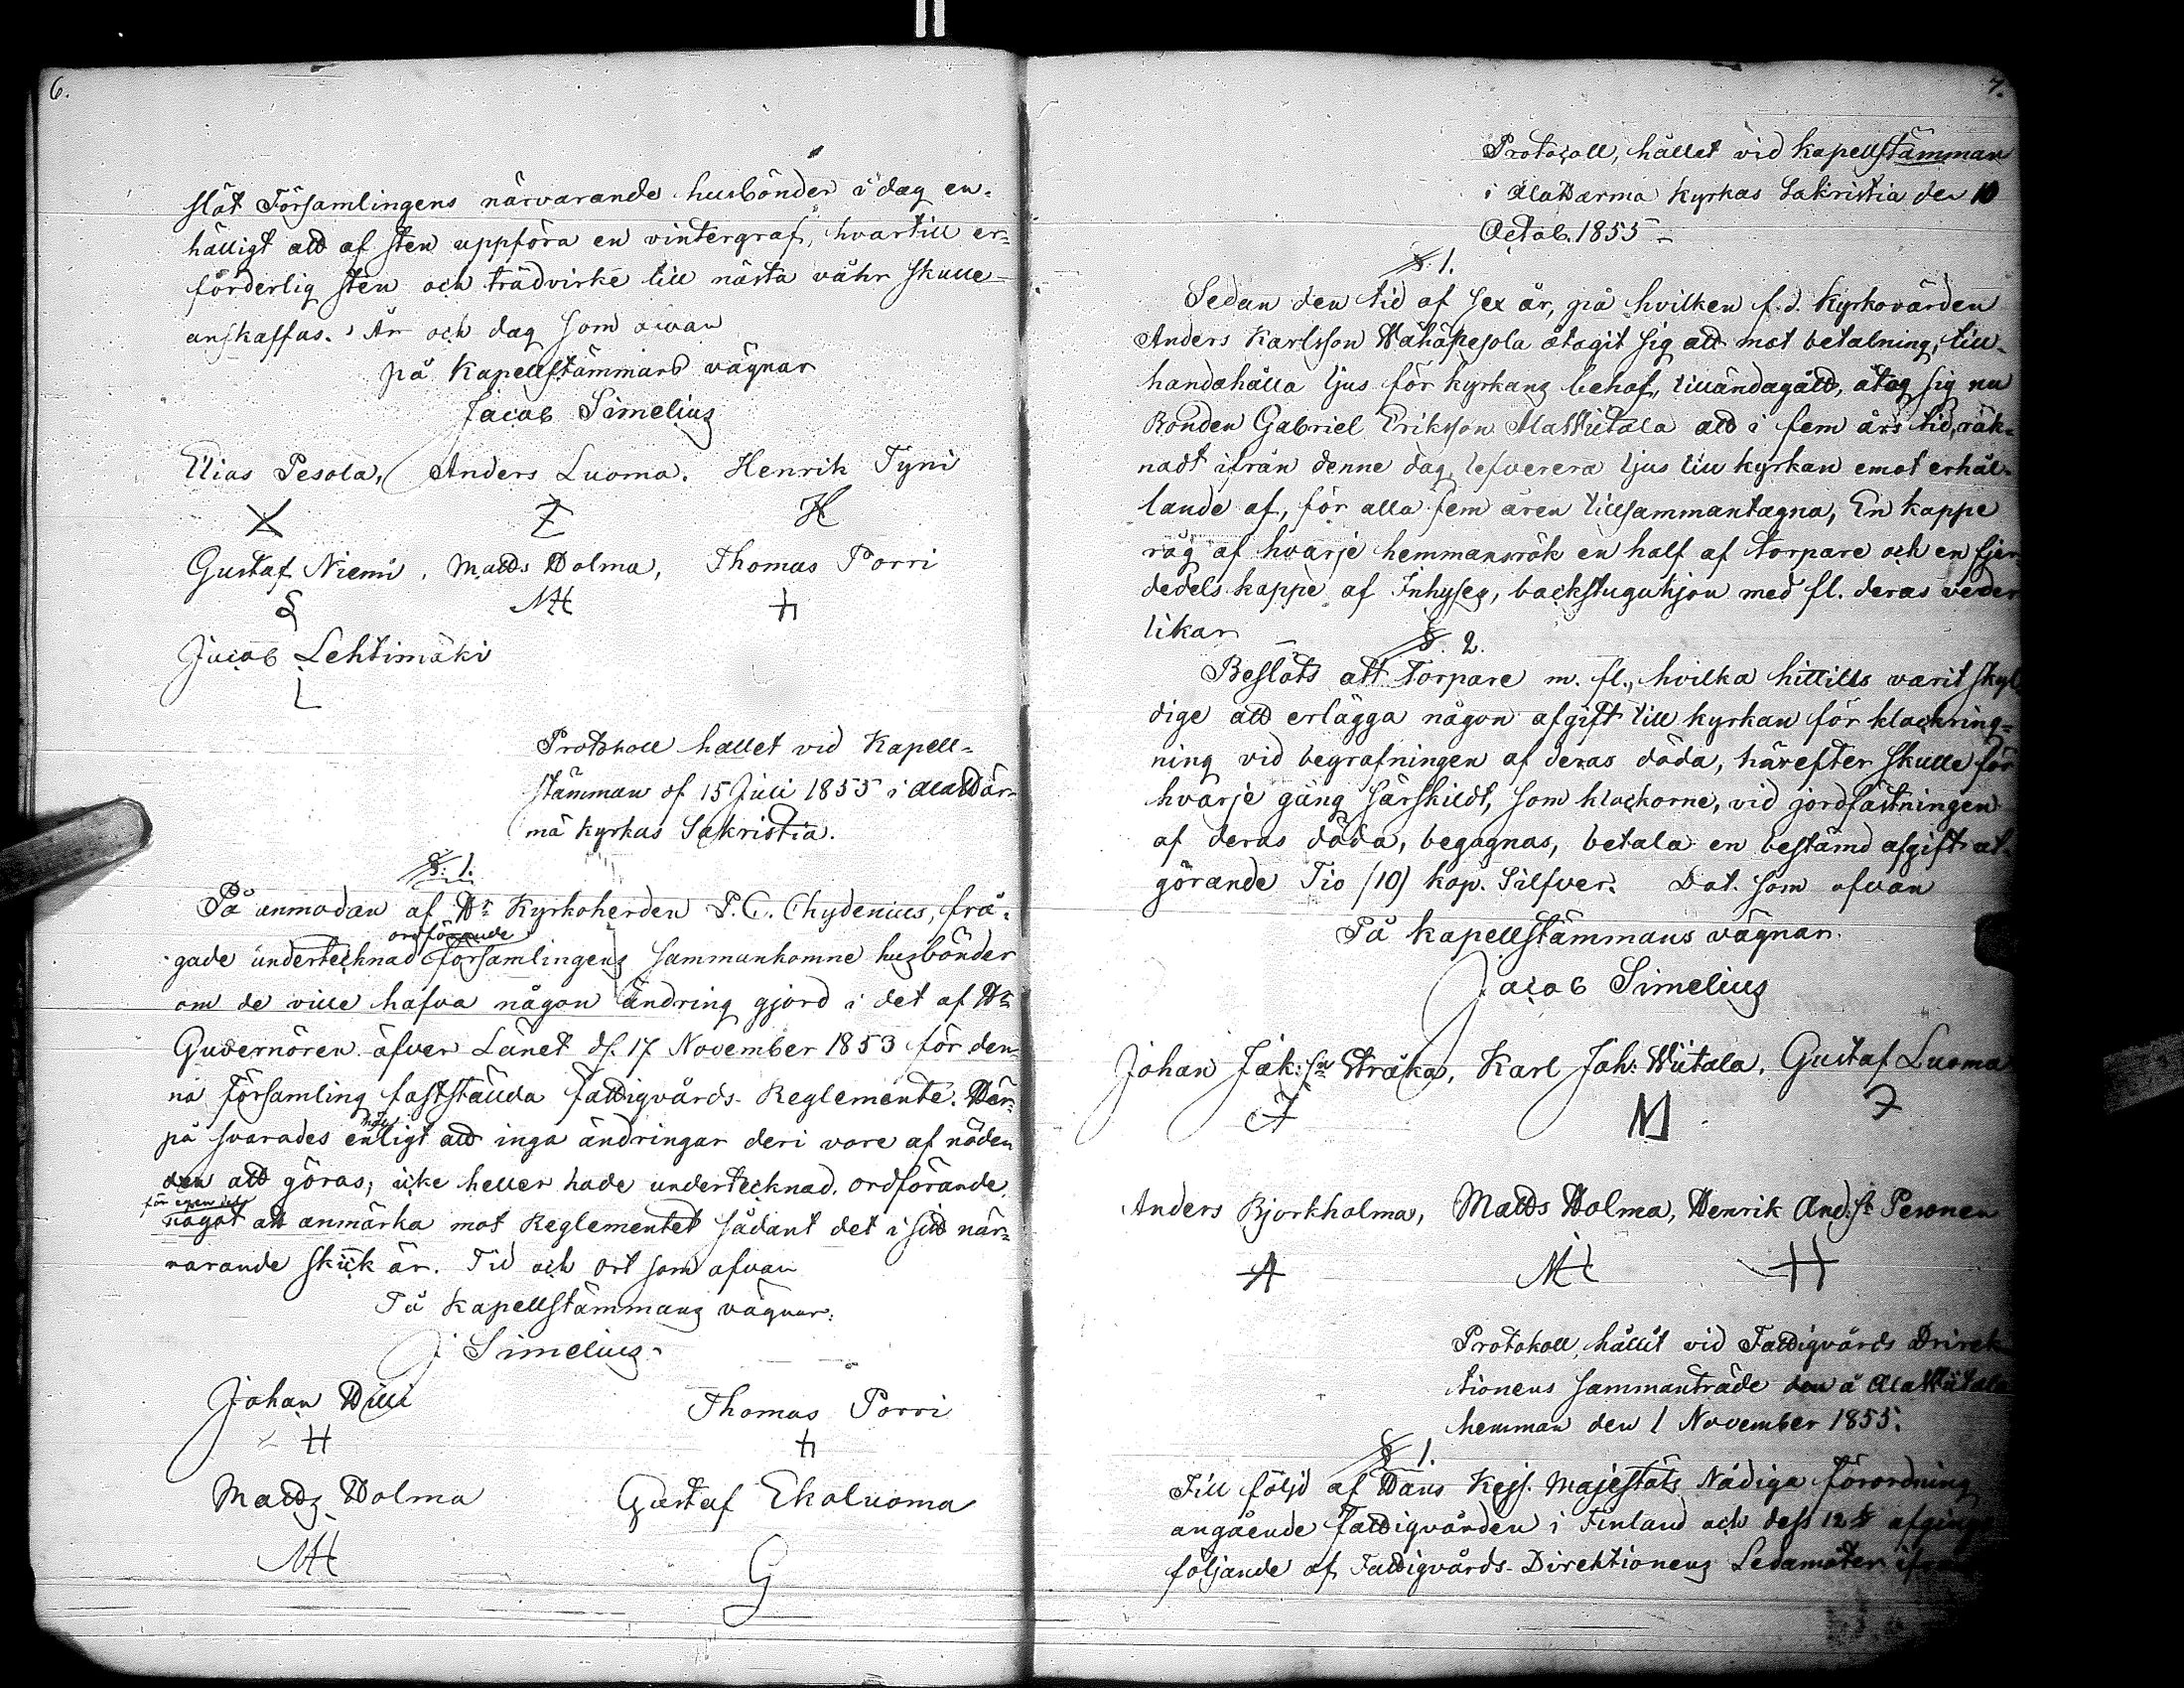 6.
slöt Församlingens närvarande husbönder i dag en-
hälligt att af sten uppföra en vintergraf, hvartill er-
förderlig sten och trädvirke till nästa våhr skulle
anskaffas. År och dag som ofvan
på Kapellstämmans vägnar
Jacob Simelius
Elias Pesola, Anders Luoma. Henrik Tyni
Gustaf Niemi, Matts Holma, Thomas Porri
MH
Jacob Lehtimäki
L
Protokoll hållet vid Kapell-
stämman d. 15 Juli 1855 i AlaHär-
mä Kyrkas Sakristia.
§. 1.
På anmodan af Hr Kyrkoherden P. C. Chydenius, frå-
ordförande
gade undertecknad församlingens sammankomne husbönder
om de ville hafva någon ändring gjord i det af Hr
Guvernören öfver Länet d. 17 November 1853 för den-
na församling fastställda Fattigvårds-Reglemente. Här-
på svarades enligt att inga ändringar deri vore af nöden
den att göras, icke heller hade undertecknad ordförande
för egen del
något att anmärka mot Reglementet sådant det i sitt när-
varande skick är. Tid och ort som ofvan
På Kapellstämmans vägnar:
J Simelius
Johan Hilli
H
Thomas Porri
Matts Holma
MH
Gustaf Ekoluoma
G
7.
Protocoll, hållet vid Kapellstämman
i AlaHärmä Kyrkas Sakristia den 10
Octob. 1855
§. 1.
Sedan den tid af sex år, på hvilken f.d. Kyrkovärden
Anders Karlsson Wähäpesola åtagit sig att mot betalning, till-
handahålla ljus för kyrkans behof, tilländagått, åtog sig nu
Bonden Gabriel Eriksson AlaWiitala att i fem års tid, räk-
nadt ifrån denne dag, lefverera ljus till kyrkan emot erhål-
lande af, för alla fem åren tillsammantagna, En kappe
råg af hvarje hemmansrök en half af torpare och en fjer-
dedels kappe af Inhyses, backstuguhjon med fl. deras veder
likar
§. 2.
Beslöts att Torpare m. fl., hvilka hittills varit skyl
dige att erlägga någon afgift till kyrkan för klockring-
ning vid begrafningen af deras döda, härefter skulle för
hvarje gång särskildt, som klockorne, vid jordfästningen
af deras döda, begagnas, betala en bestämd afgift ut-
görande Tio (10) kop. Silfver. Dat. som ofvan
På kapellstämmans vägnar.
Jacob Simelius
Johan Jak:sn Kråka, Karl Joh: Wiitala, Gustaf Luoma
Anders Björkholma, Matts Holma, Henrik And:sn Pesonen
A MH H
Protokoll, hållit vid Fattigvårds Direk
tionens sammanträde den å AlaWiitala
hemman den 1 November 1855.
§ 1.
Till följd af Hans Kejs. Majestäts Nådiga förordning
angående fattigvården i Finland och dess 12 § afgingo
följande af Fattigvårds-Direktionens Ledamöter